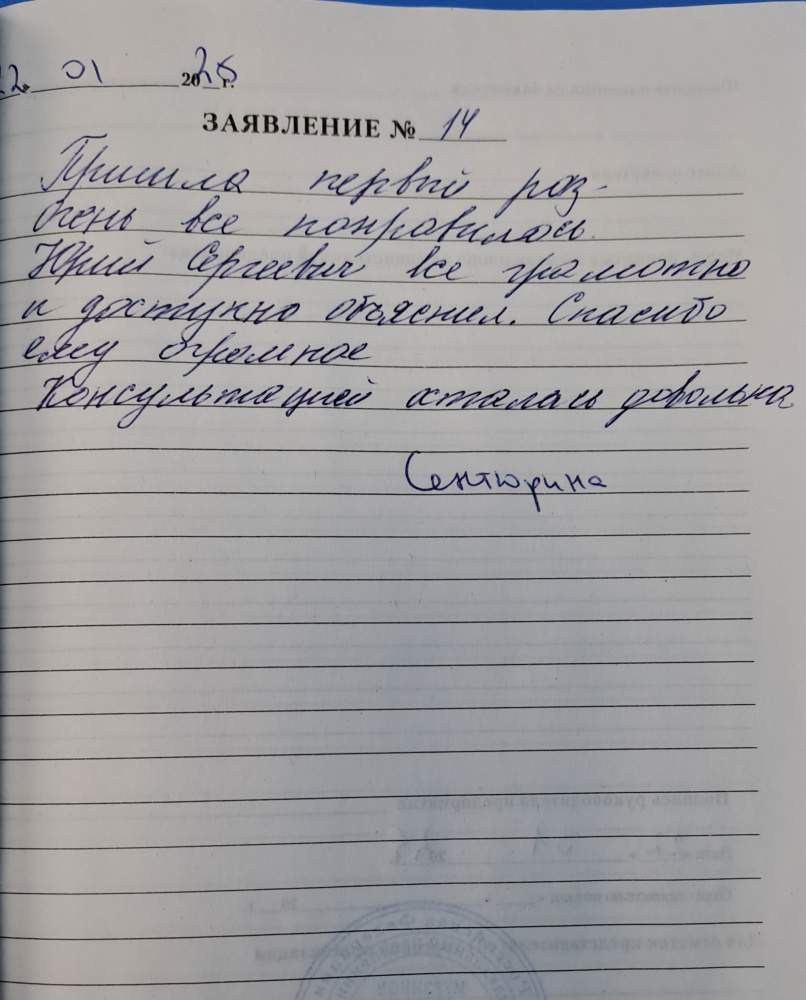 22. 01 2025 г.
ЗАЯВЛЕНИЕ № 14
Пришла первый раз.
Очень все понравилось.
Юрий Сергеевич все грамотно
и доступно объяснил. Спасибо
ему огромное
Консультацией осталась довольна
Сентюрина